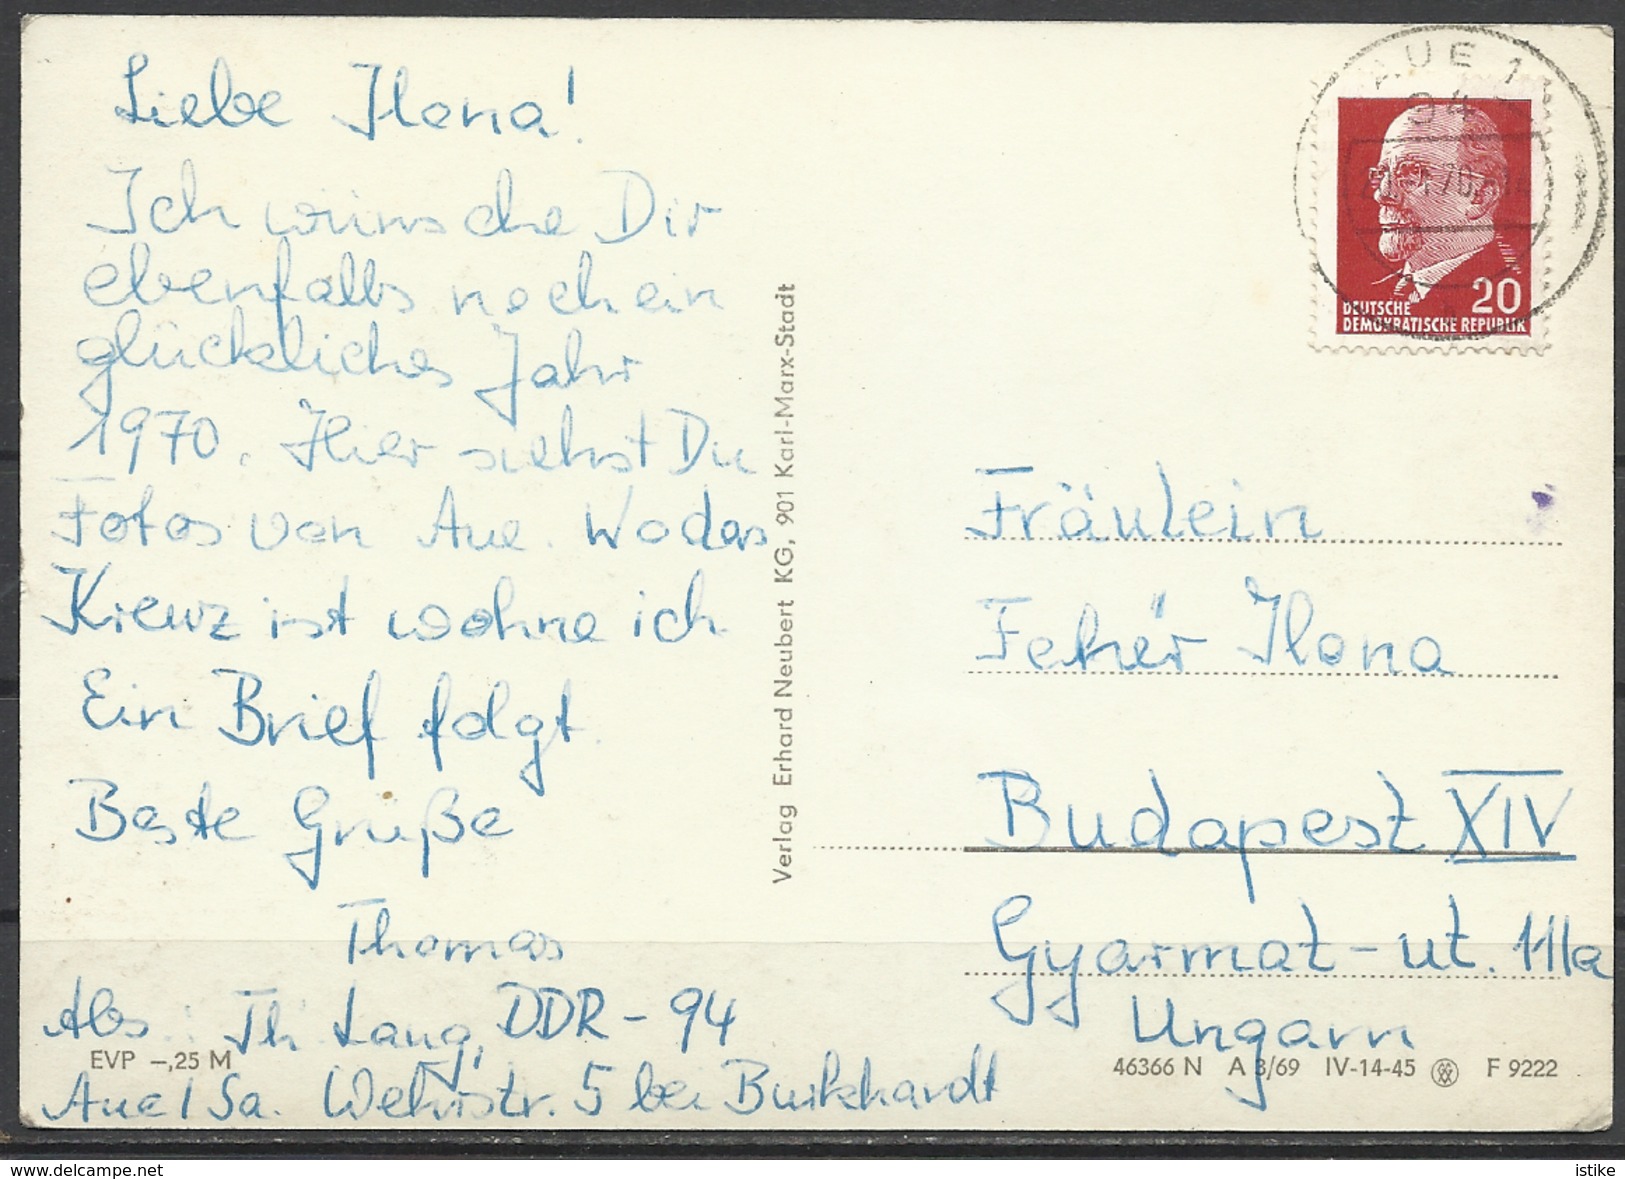 Liebe Ilona!
Ich wünsche Dir
ebenfalls noch ein
glückliches Jahr
1970. Hier siehst Du
Fotos von Aue. Wo das
Kreuz ist wohne ich
Ein Brief folgt.
Beste Grüße
Thomas
Abs.: Th. Lang, DDR - 94
Aue / Sa. Wehrstr. 5 bei Burkhardt
EVP –,25 M
Verlag Erhard Neubert KG, 901 Karl-Marx-Stadt
AUE 1
94
20
DEUTSCHE
DEMOKRATISCHE REPUBLIK
Fräulein
Fehér Ilona
Budapest XIV
Gyarmat-ut. 111a
Ungarn
46366 N A 3/69 IV-14-45 F 9222
istike
www.delcampe.net